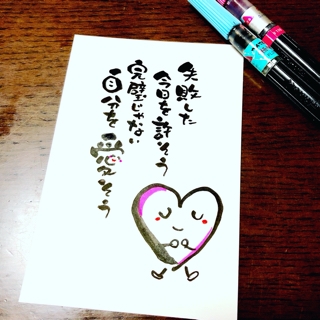 失敗した
今日を許そう
完璧じゃない
自分を愛そう